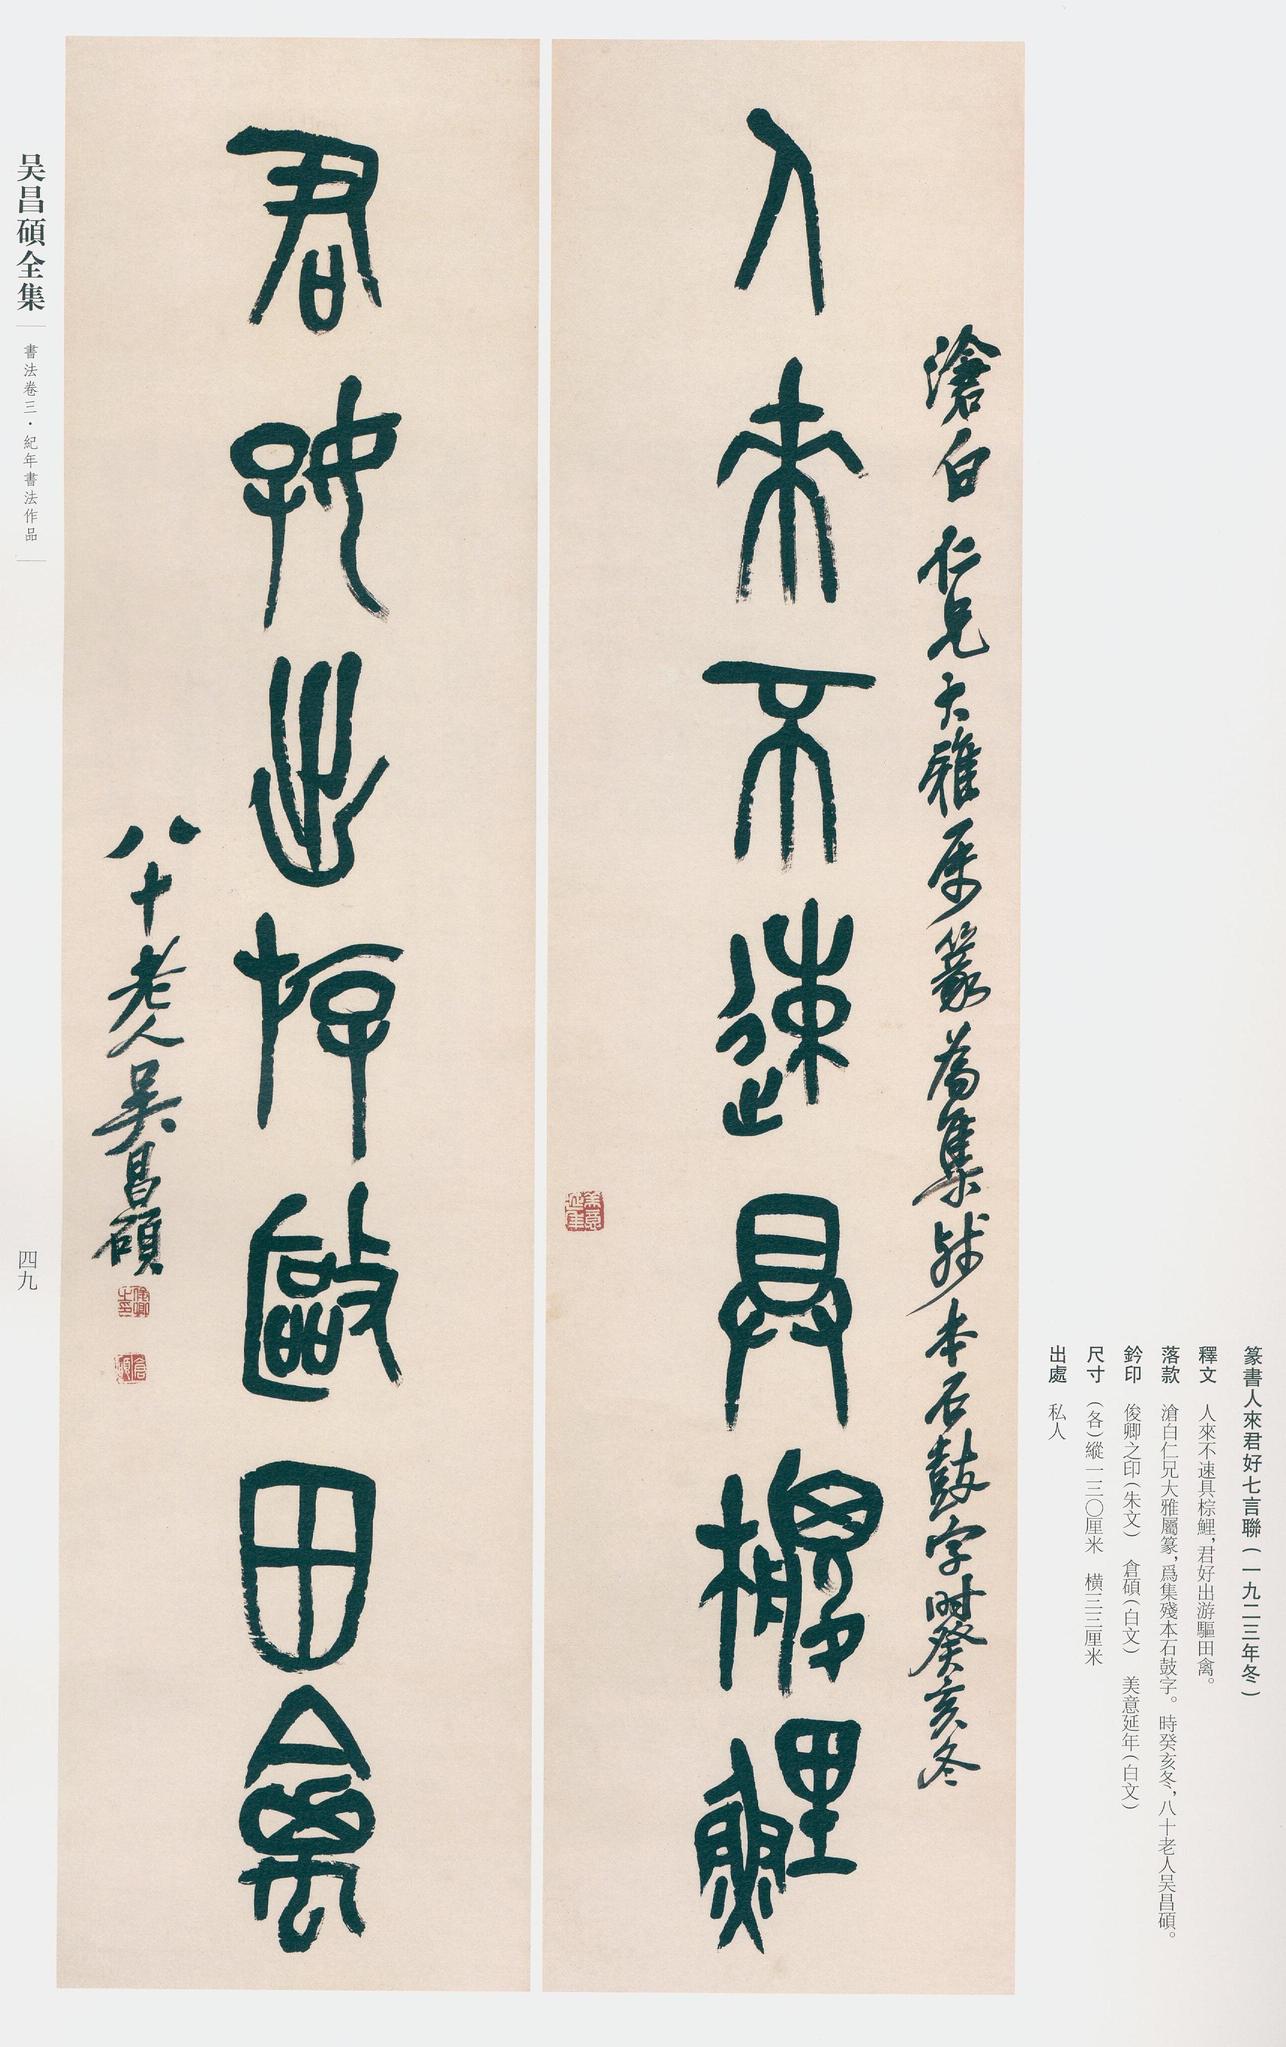 篆書人來君好七言聯（一九二三年冬）
釋文　人來不速具棕鯉，君好出游驅田禽。
落款　滄白仁兄大雅屬篆，爲集殘本石鼓字。時癸亥冬，八十老人吴昌碩。
鈐印　俊卿之印（朱文）　倉碩（白文）　美意延年（白文）
尺寸　（各）縱一三〇厘米　横三三厘米
出處　私人
滄白仁兄大雅屬篆爲集殘本石鼓字時癸亥冬
人來不速具棕鯉
美意延年
君好出游驅田禽
八十老人吴昌碩
俊卿之印
倉碩
吴昌碩全集
書法卷三・紀年書法作品
四九